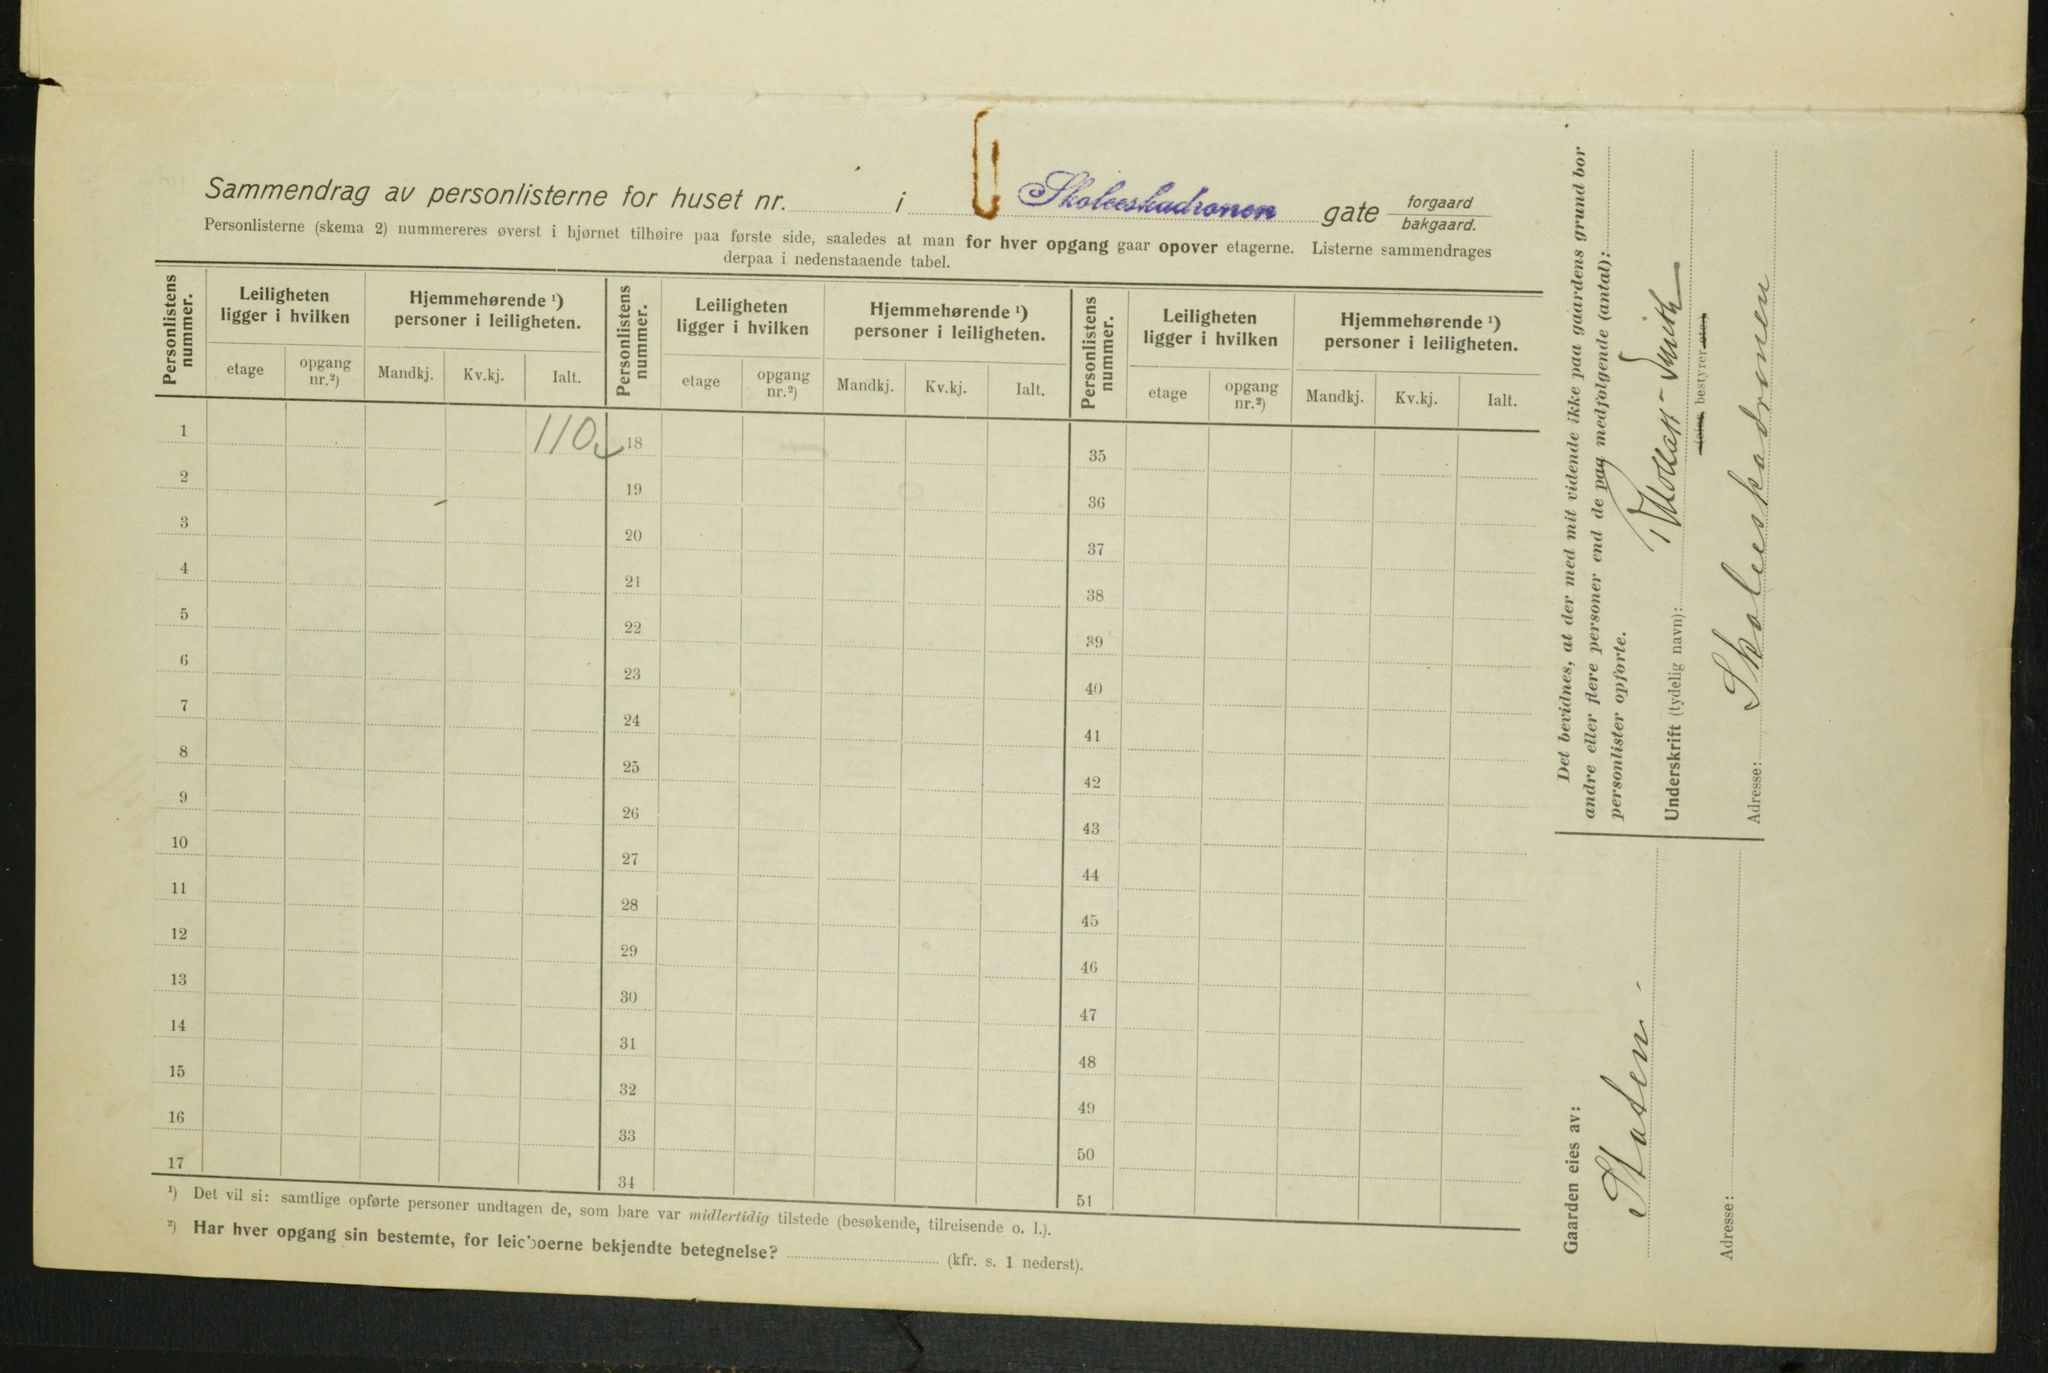 Sammendrag av personlisterne for huset nr. i Skoleeskadronen gate forgaard bakgaard.
Personlisterne (skema 2) nummereres øverst i hjørnet tilhøire paa første side, saaledes at man for hver opgang gaar opover etagerne. Listerne sammendrages
derpaa i nedenstaaende tabel.
Personlistens nummer. Leiligheten ligger i hvilken Hjemmehørende ¹) personer i leiligheten. Personlistens nummer. Leiligheten ligger i hvilken Hjemmehørende ¹) personer i leiligheten. Personlistens nummer. Leiligheten ligger i hvilken Hjemmehørende ¹) personer i leiligheten.
etage opgang nr.²) Mandkj. Kv.kj. Ialt. etage opgang nr.²) Mandkj. Kv.kj. Ialt. etage opgang nr.²) Mandkj. Kv.kj. Ialt.
1 110 18 35
2 19 36
3 20 37
4 21 38
5 22 39
6 23 40
7 24 41
8 25 42
9 26 43
10 27 44
11 28 45
12 29 46
13 30 47
14 31 48
15 32 49
16 33 50
17 34 51
¹) Det vil si: samtlige opførte personer undtagen de, som bare var midlertidig tilstede (besøkende, tilreisende o. l.).
²) Har hver opgang sin bestemte, for leieboerne bekjendte betegnelse? (kfr. s. 1 nederst).
Det bevidnes, at der med mit vidende ikke paa gaardens grund bor
andre eller flere personer end de paa medfølgende (antal):
personlister opførte.
Underskrift (tydelig navn):
(eier, bestyrer etc.)
Adresse: Skoleeskadronen
Gaarden eies av:
Staten.
Adresse: